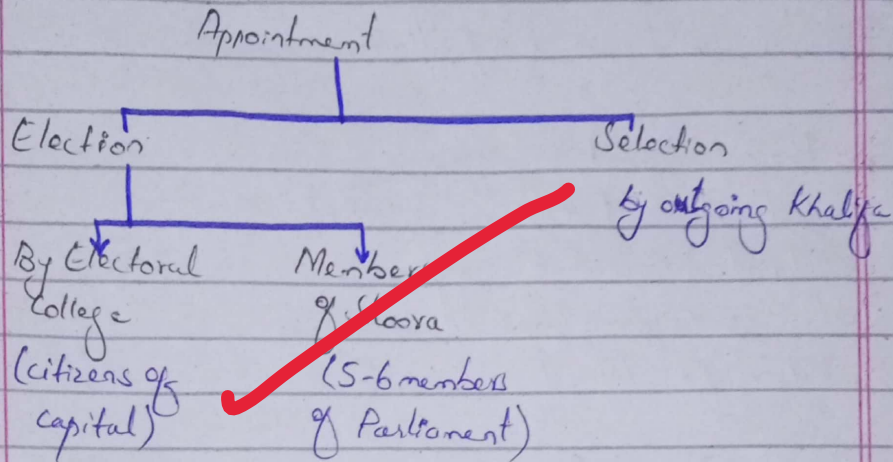 Appointment
Election
Selection
by outgoing Khalifa
By Electoral
College
(citizens of
capital)
Members
of Shoora
(5-6 members
of Parliament)